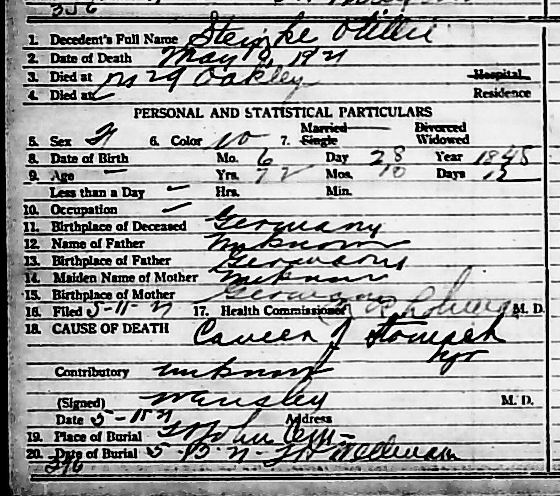 356
1. Decedent's Full Name Steinke Otillie
2. Date of Death May 10, 1921
3. Died at Oakley Hospital
4. Died at Residence
PERSONAL AND STATISTICAL PARTICULARS
5. Sex F 6. Color W 7. Married Single Divorced Widowed
8. Date of Birth Mo. 6 Day 28 Year 1848
9. Age Yrs. 72 Mos. 10 Days 12
Less than a Day Hrs. Min.
10. Occupation
11. Birthplace of Deceased Germany
12. Name of Father unknown
13. Birthplace of Father Germany
14. Maiden Name of Mother unknown
15. Birthplace of Mother Germany
16. Filed 5-11-21 17. Health Commissioner M. D.
18. CAUSE OF DEATH Cancer of Stomach
Contributory unknown
(Signed) M. D.
Date 5-11-21 Address
19. Place of Burial St John Cem
20. Date of Burial 5-13-21